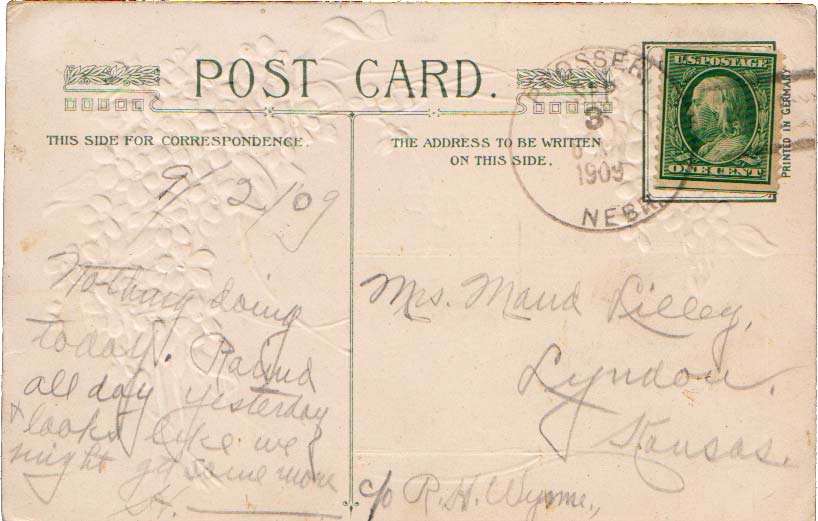 POST CARD.
THIS SIDE FOR CORRESPONDENCE.
9/2/09
Nothing doing
today. Raind
all day yesterday
& looks like we
might get some more
H.
THE ADDRESS TO BE WRITTEN
ON THIS SIDE.
3
1909
NEBR.
U.S. POSTAGE
ONE CENT
PRINTED IN GERMANY
Mrs. Maud Lilley,
Lyndon,
Kansas.
c/o R. H. Wynne,